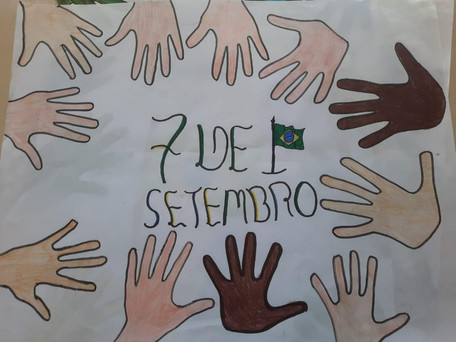 7 DE
SETEMBRO